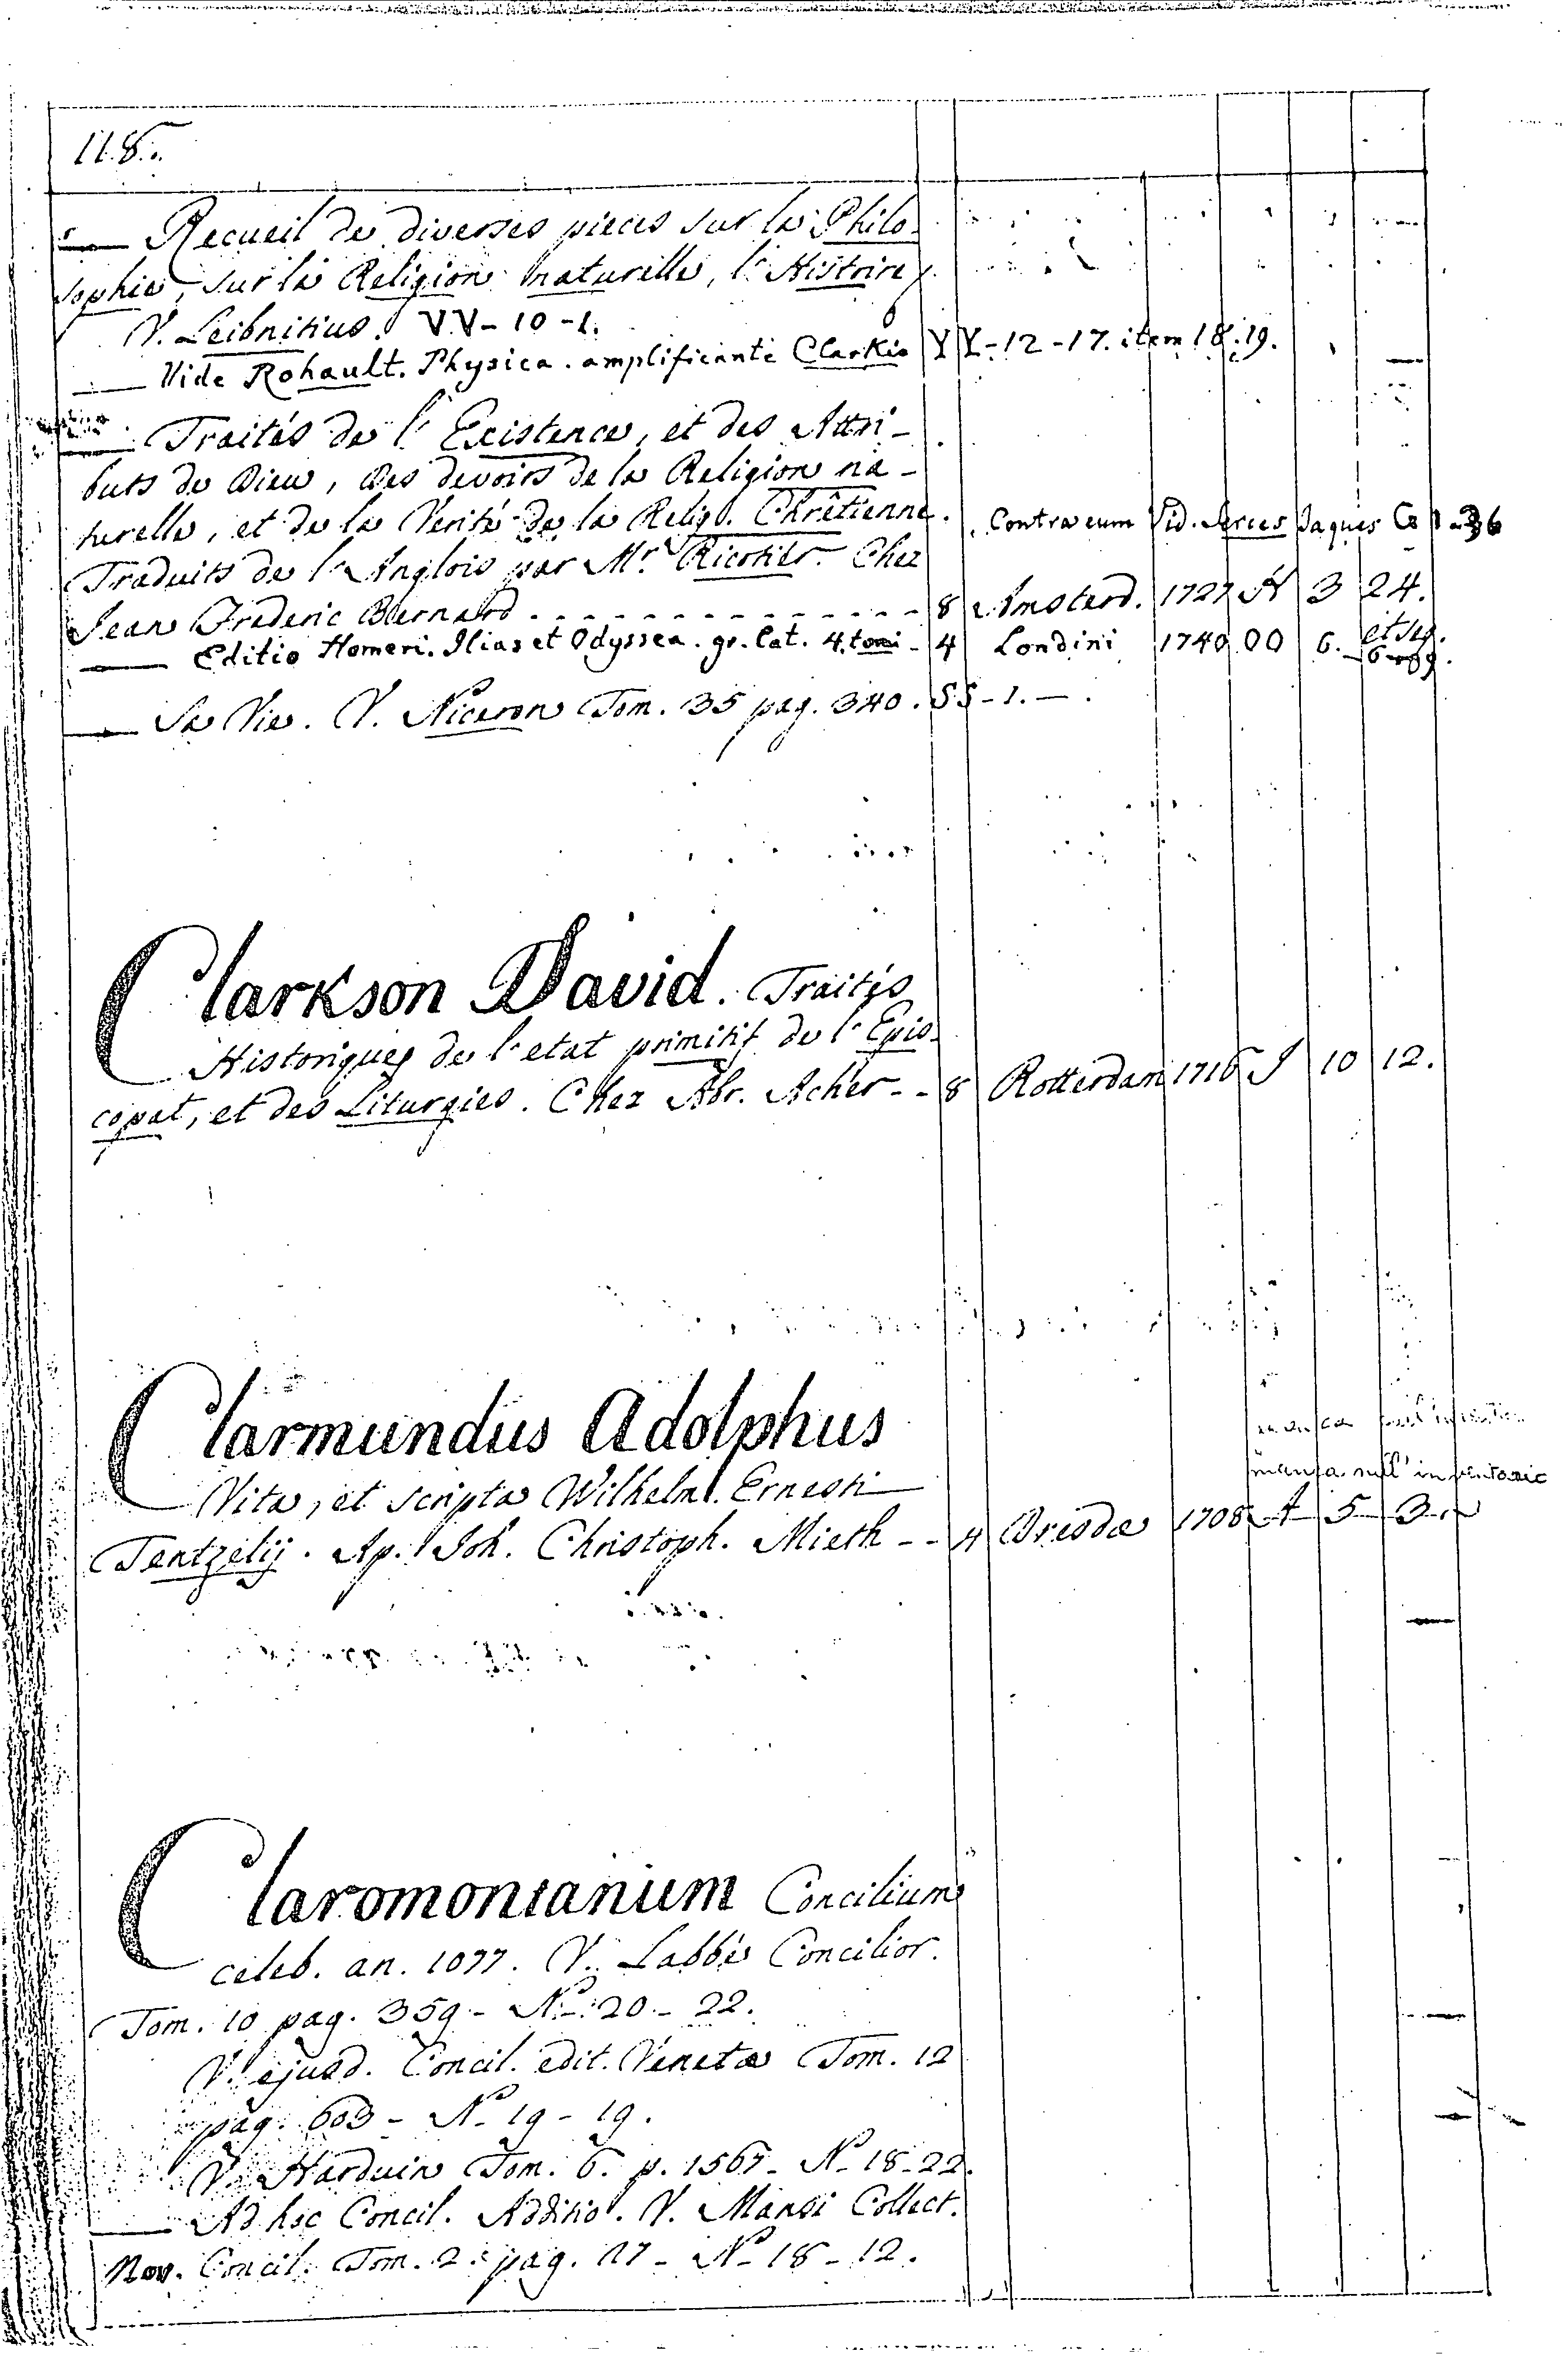 118.
— Recueil de diverses pieces sur la Philo-
sophie, sur la Religion naturelle, l'Histoire,
V. Leibnitius. VV - 10 - 1.
— Vide Rohault. Physica. amplificante Clarkio YY - 12 - 17. item 18. 19.
— Traités de l'Existence, et des Attri-
buts de Dieu, des devoirs de la Religion na-
turelle, et de la Verité de la Relig. Chrêtienne. Contra eum Vid. Serces Jaques
Traduits de l'Anglois par Mr. Ricotier. Chez
Jean Frederic Bernard - - - 8 Amsterd. 1727 3 24.
— Editio Homeri. Ilias et Odyssea. gr. lat. 4. tomi - 4 Londini 1740 OO 6. et seq.
— Sa Vie. V. Niceron Tom. 35 pag. 340. SS - 1. —.
Clarkson David. Traités
Historiques de l'etat primitif de l'Epis-
copat, et des Liturgies. Chez Abr. Acher - - 8 Rotterdam 1716 J 10 12.
manca nell' inventario
Clarmundus Adolphus
Vita, et scripta Wilhelm. Ernesti
Tentzelij. Ap. Joh. Christoph. Mieth - - 4 Dresdæ 1708 A 5 3.
Claromontanum Concilium
celeb. an. 1077. V. Labbe Concilior.
Tom. 10 pag. 359 - N - 20 - 22.
V. ejusd. Concil. edit. Veneta Tom. 12
pag. 603 - N - 19 - 19.
V. Harduin Tom. 6. p. 1567 - N - 18 - 22.
— Ad hoc Concil. Additio. V. Mansi Collect.
Nov. Concil. Tom. 2. pag. 27 - N - 18 - 12.